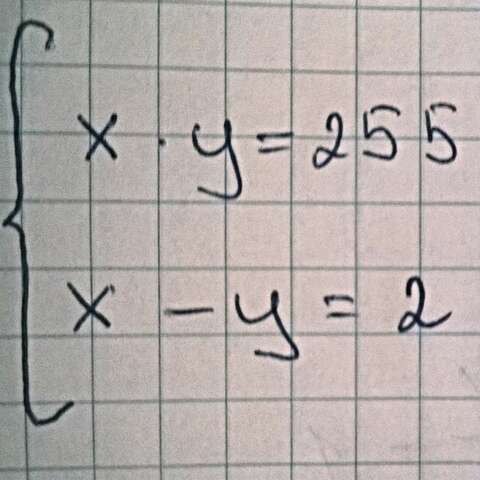 x · y = 255
x - y = 2